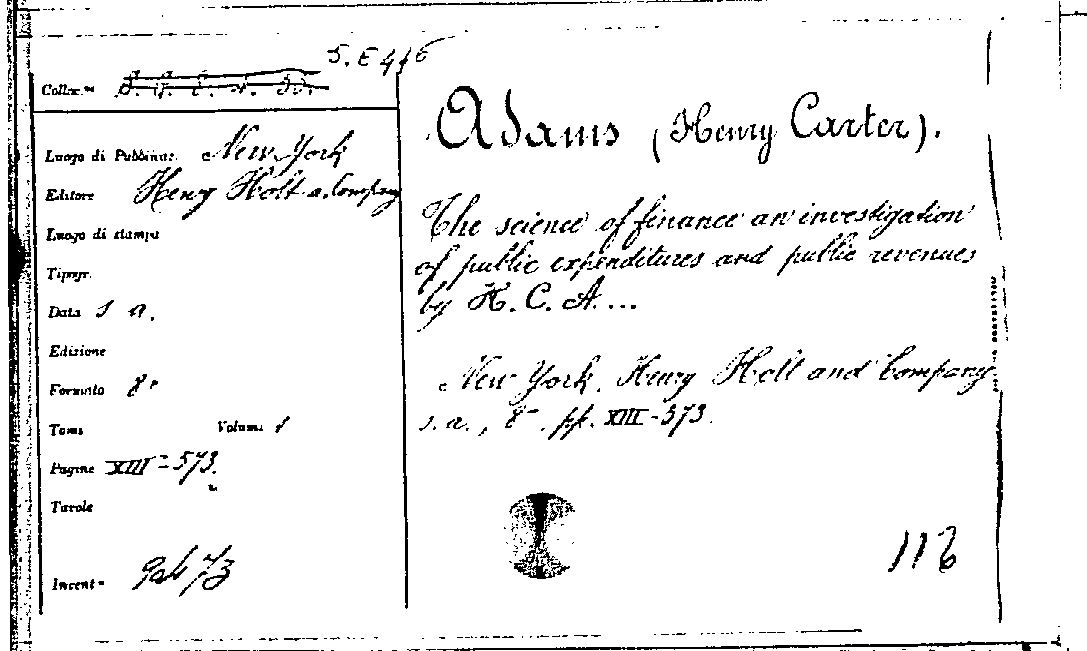 5. E 446
Colloc.ne
Luogo di Pubblicaz. New York
Editore Henry Holt a. Company
Luogo di stampa
Tipogr.
Data s a.
Edizione
Formato 8°
Tomi Volumi 1
Pagine XIII-573.
Tavole
Incent-
Adams (Henry Carter).
The science of finance an investigation
of public expenditures and public revenues
by H. C. A....
New York, Henry Holt and Company
s. a., 8° pp. XIII-573.
116